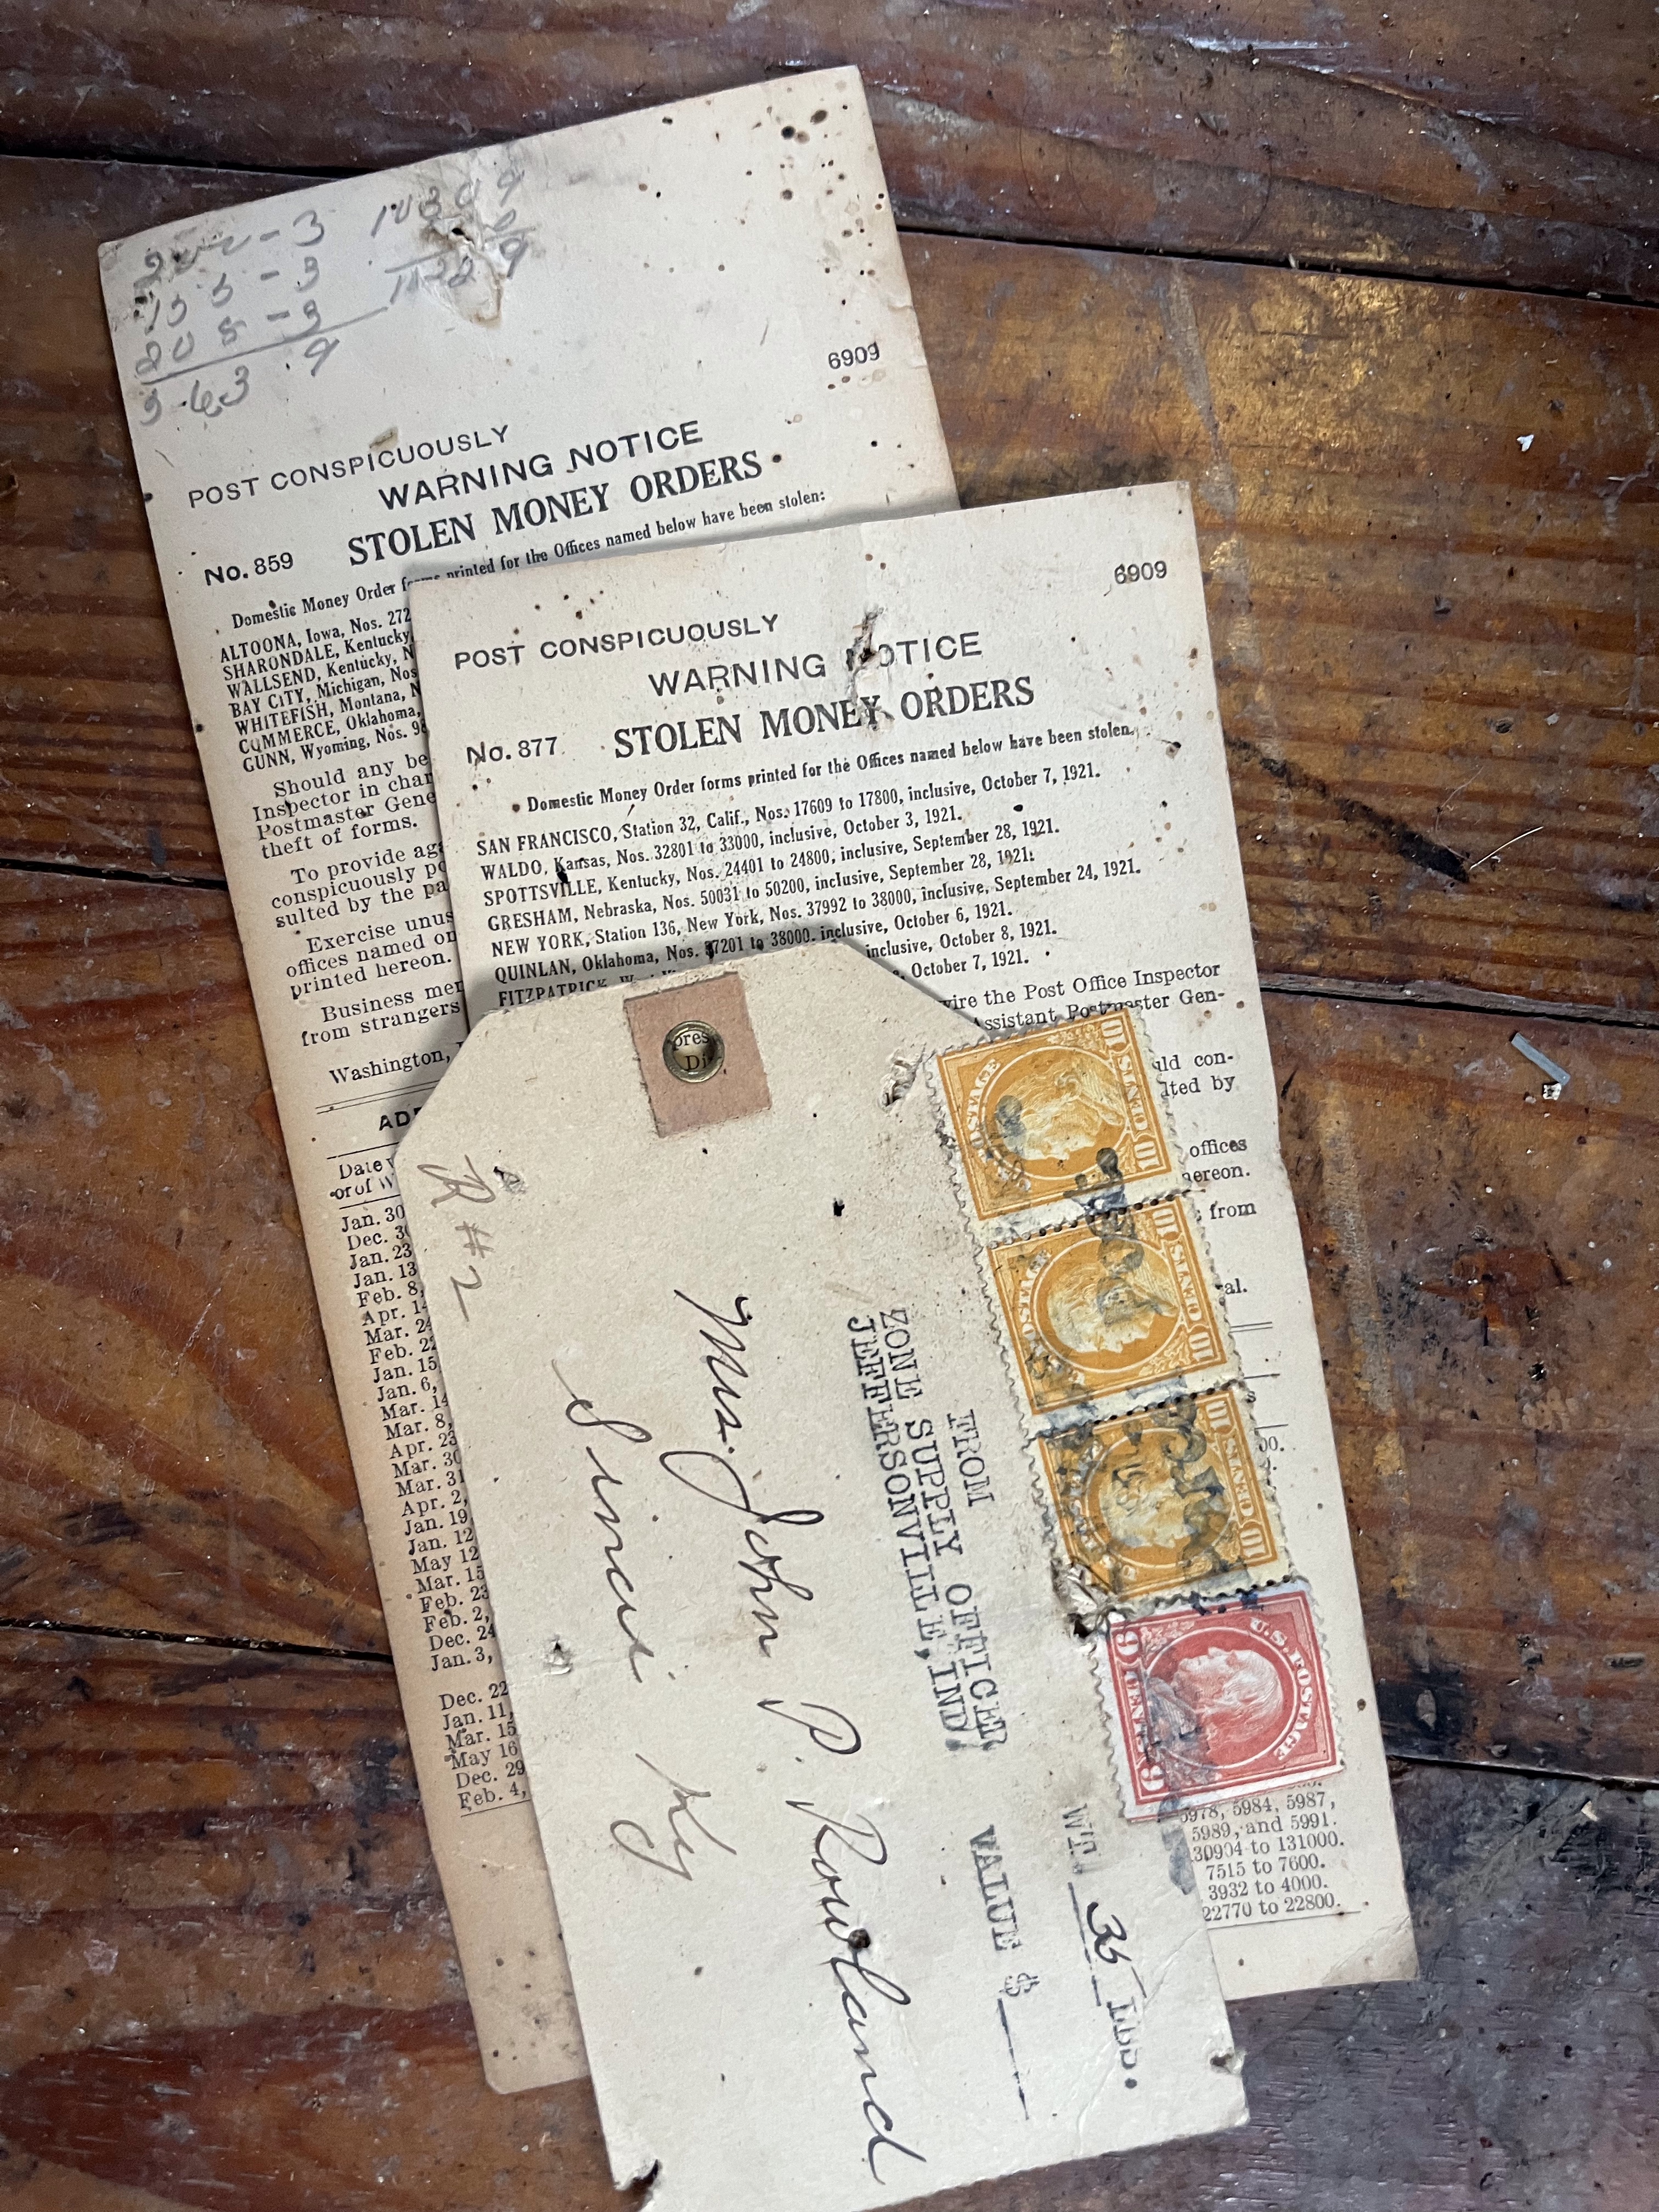 6909
POST CONSPICUOUSLY
WARNING NOTICE
No. 859 STOLEN MONEY ORDERS
Domestic Money Order forms printed for the Offices named below have been stolen:
ALTOONA, Iowa, Nos. 272
SHARONDALE, Kentucky,
WALLSEND, Kentucky, N
BAY CITY, Michigan, Nos
WHITEFISH, Montana, N
COMMERCE, Oklahoma,
GUNN, Wyoming, Nos. 98
Should any be
Inspector in char
Postmaster Gene
theft of forms.
To provide aga
conspicuously po
sulted by the pa
Exercise unus
offices named on
printed hereon.
Business mer
from strangers
Washington,
AD
Date
or of W
Jan. 30
Dec. 3
Jan. 23
Jan. 13
Feb. 8,
Apr. 14
Mar. 24
Feb. 2
Jan. 15
Jan. 6,
Mar. 14
Mar. 8,
Apr. 23
Mar. 30
Mar. 31
Apr. 2,
Jan. 19
Jan. 12
May 12
Mar. 15
Feb. 23
Feb. 2,
Dec. 24
Jan. 3,
Dec. 22
Jan. 11,
Mar. 15
May 16
Dec. 29
Feb. 4,
6909
POST CONSPICUOUSLY
WARNING NOTICE
No. 877 STOLEN MONEY ORDERS
Domestic Money Order forms printed for the Offices named below have been stolen.
SAN FRANCISCO, Station 32, Calif., Nos. 17609 to 17800, inclusive, October 7, 1921.
WALDO, Kansas, Nos. 32801 to 33000, inclusive, October 3, 1921.
SPOTTSVILLE, Kentucky, Nos. 24401 to 24800, inclusive, September 28, 1921.
GRESHAM, Nebraska, Nos. 50031 to 50200, inclusive, September 28, 1921.
NEW YORK, Station 136, New York, Nos. 37992 to 38000, inclusive, September 24, 1921.
QUINLAN, Oklahoma, Nos. 37201 to 38000, inclusive, October 6, 1921.
FITZPATRICK, inclusive, October 8, 1921.
October 7, 1921.
wire the Post Office Inspector
Assistant Postmaster Gen-
uld con-
lted by
offices
hereon.
from
al.
5978, 5984, 5987,
5989, and 5991.
130904 to 131000.
7515 to 7600.
3932 to 4000.
22770 to 22800.
pres
Di
R #2
10 CENTS 10
POSTAGE
10 CENTS 10
POSTAGE
10 CENTS 10
U.S. POSTAGE
9 CENTS 9
FROM
ZONE SUPPLY OFFICER
JEFFERSONVILLE, IND.
WT. 35 LBS.
VALUE $
Mr. John P. Rowland
Sirci Ky